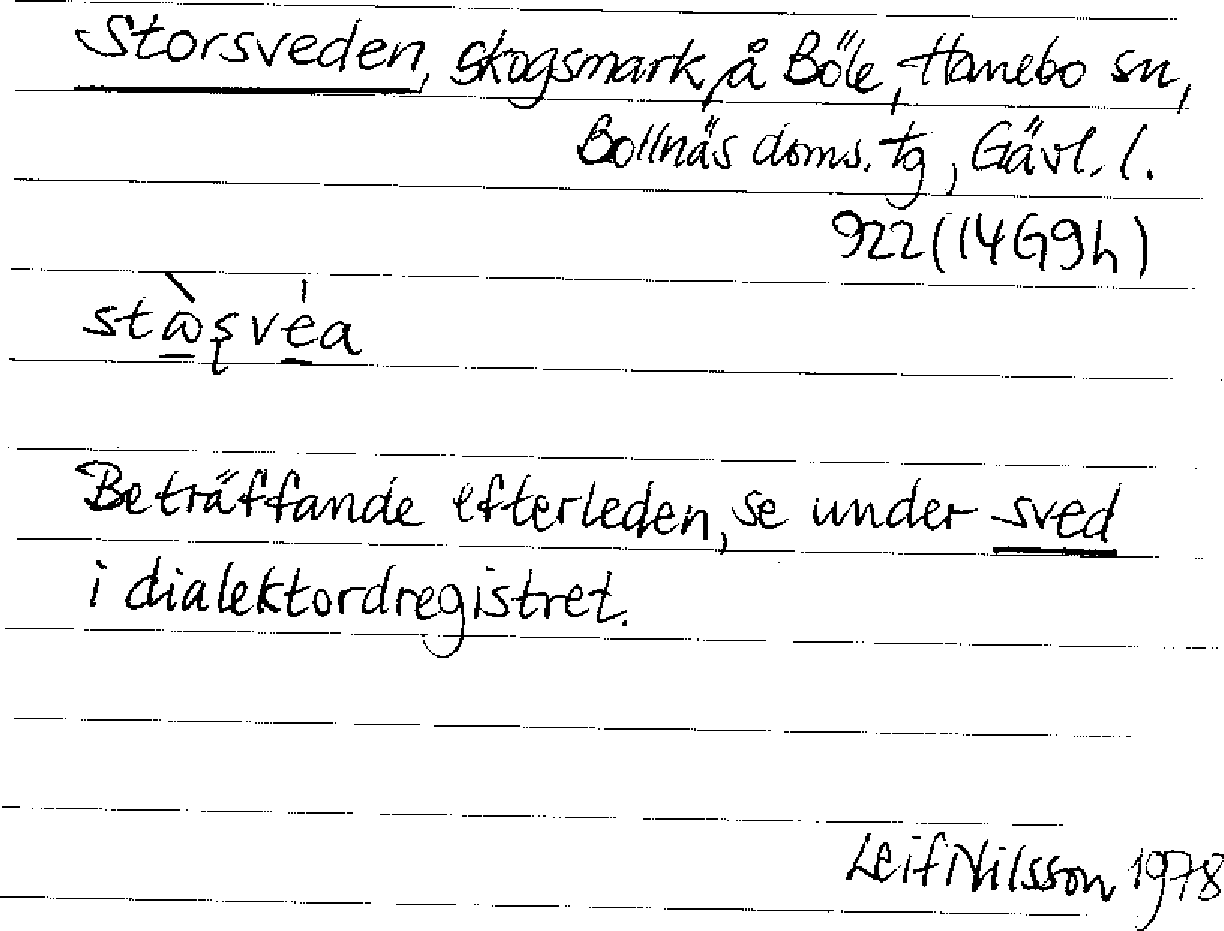 Storsveden, skogsmark å Böle, Hanebo sn,
Bollnäs doms. tg, Gävl. l.
922 (14G9h)
Beträffande efterleden, se under sved
i dialektordregistret.
Leif Nilsson 1978